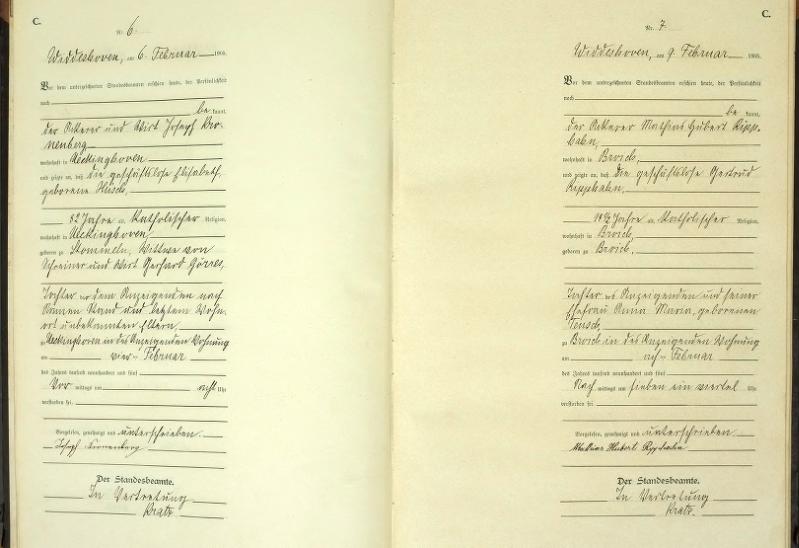 C.
Nr. 6.
Widdeshoven, am 6. Februar 1905.
Vor dem unterzeichneten Standesbeamten erschien heute, der Persönlichkeit
nach
be kannt,
der Ackerer und Wirt Joseph Kro-
nenberg
wohnhaft in Ueckinghoven
und zeigte an, daß die geschäftslose Elisabeth,
geborene Hüsch,
82 Jahre alt, Katholischer Religion,
wohnhaft in Ueckinghoven,
geboren zu Stommeln, Wittwe von
Schreiner und Wirt Gerhard Görres,
Tochter von dem Anzeigenden nach
Namen Stand und letztem Wohn-
ort unbekannten Eltern
zu Ueckinghoven in des Anzeigenden Wohnung
am vier Februar
des Jahres tausend neunhundert und fünf
Vor mittags um acht Uhr
verstorben sei.
Vorgelesen, genehmigt und unterschrieben.
Joseph Kronenberg
Der Standesbeamte.
In Vertretung
C.
Nr. 7.
Widdeshoven, am 9. Februar 1905.
Vor dem unterzeichneten Standesbeamten erschien heute, der Persönlichkeit
nach
be kannt,
der Ackerer Mathias Hubert Ripp-
hahn,
wohnhaft in Broich,
und zeigte an, daß die geschäftslose Gertrud
Ripphahn,
Jahre alt, Katholischer Religion,
wohnhaft in Broich,
geboren zu Broich,
Tochter des Anzeigenden und seiner
Ehefrau Anna Maria, geborenen
zu Broich in des Anzeigenden Wohnung
am acht Februar
des Jahres tausend neunhundert und fünf
Nach mittags um sieben ein viertel Uhr
verstorben sei.
Vorgelesen, genehmigt und unterschrieben.
Mathias Hubert Ripphahn
Der Standesbeamte.
In Vertretung